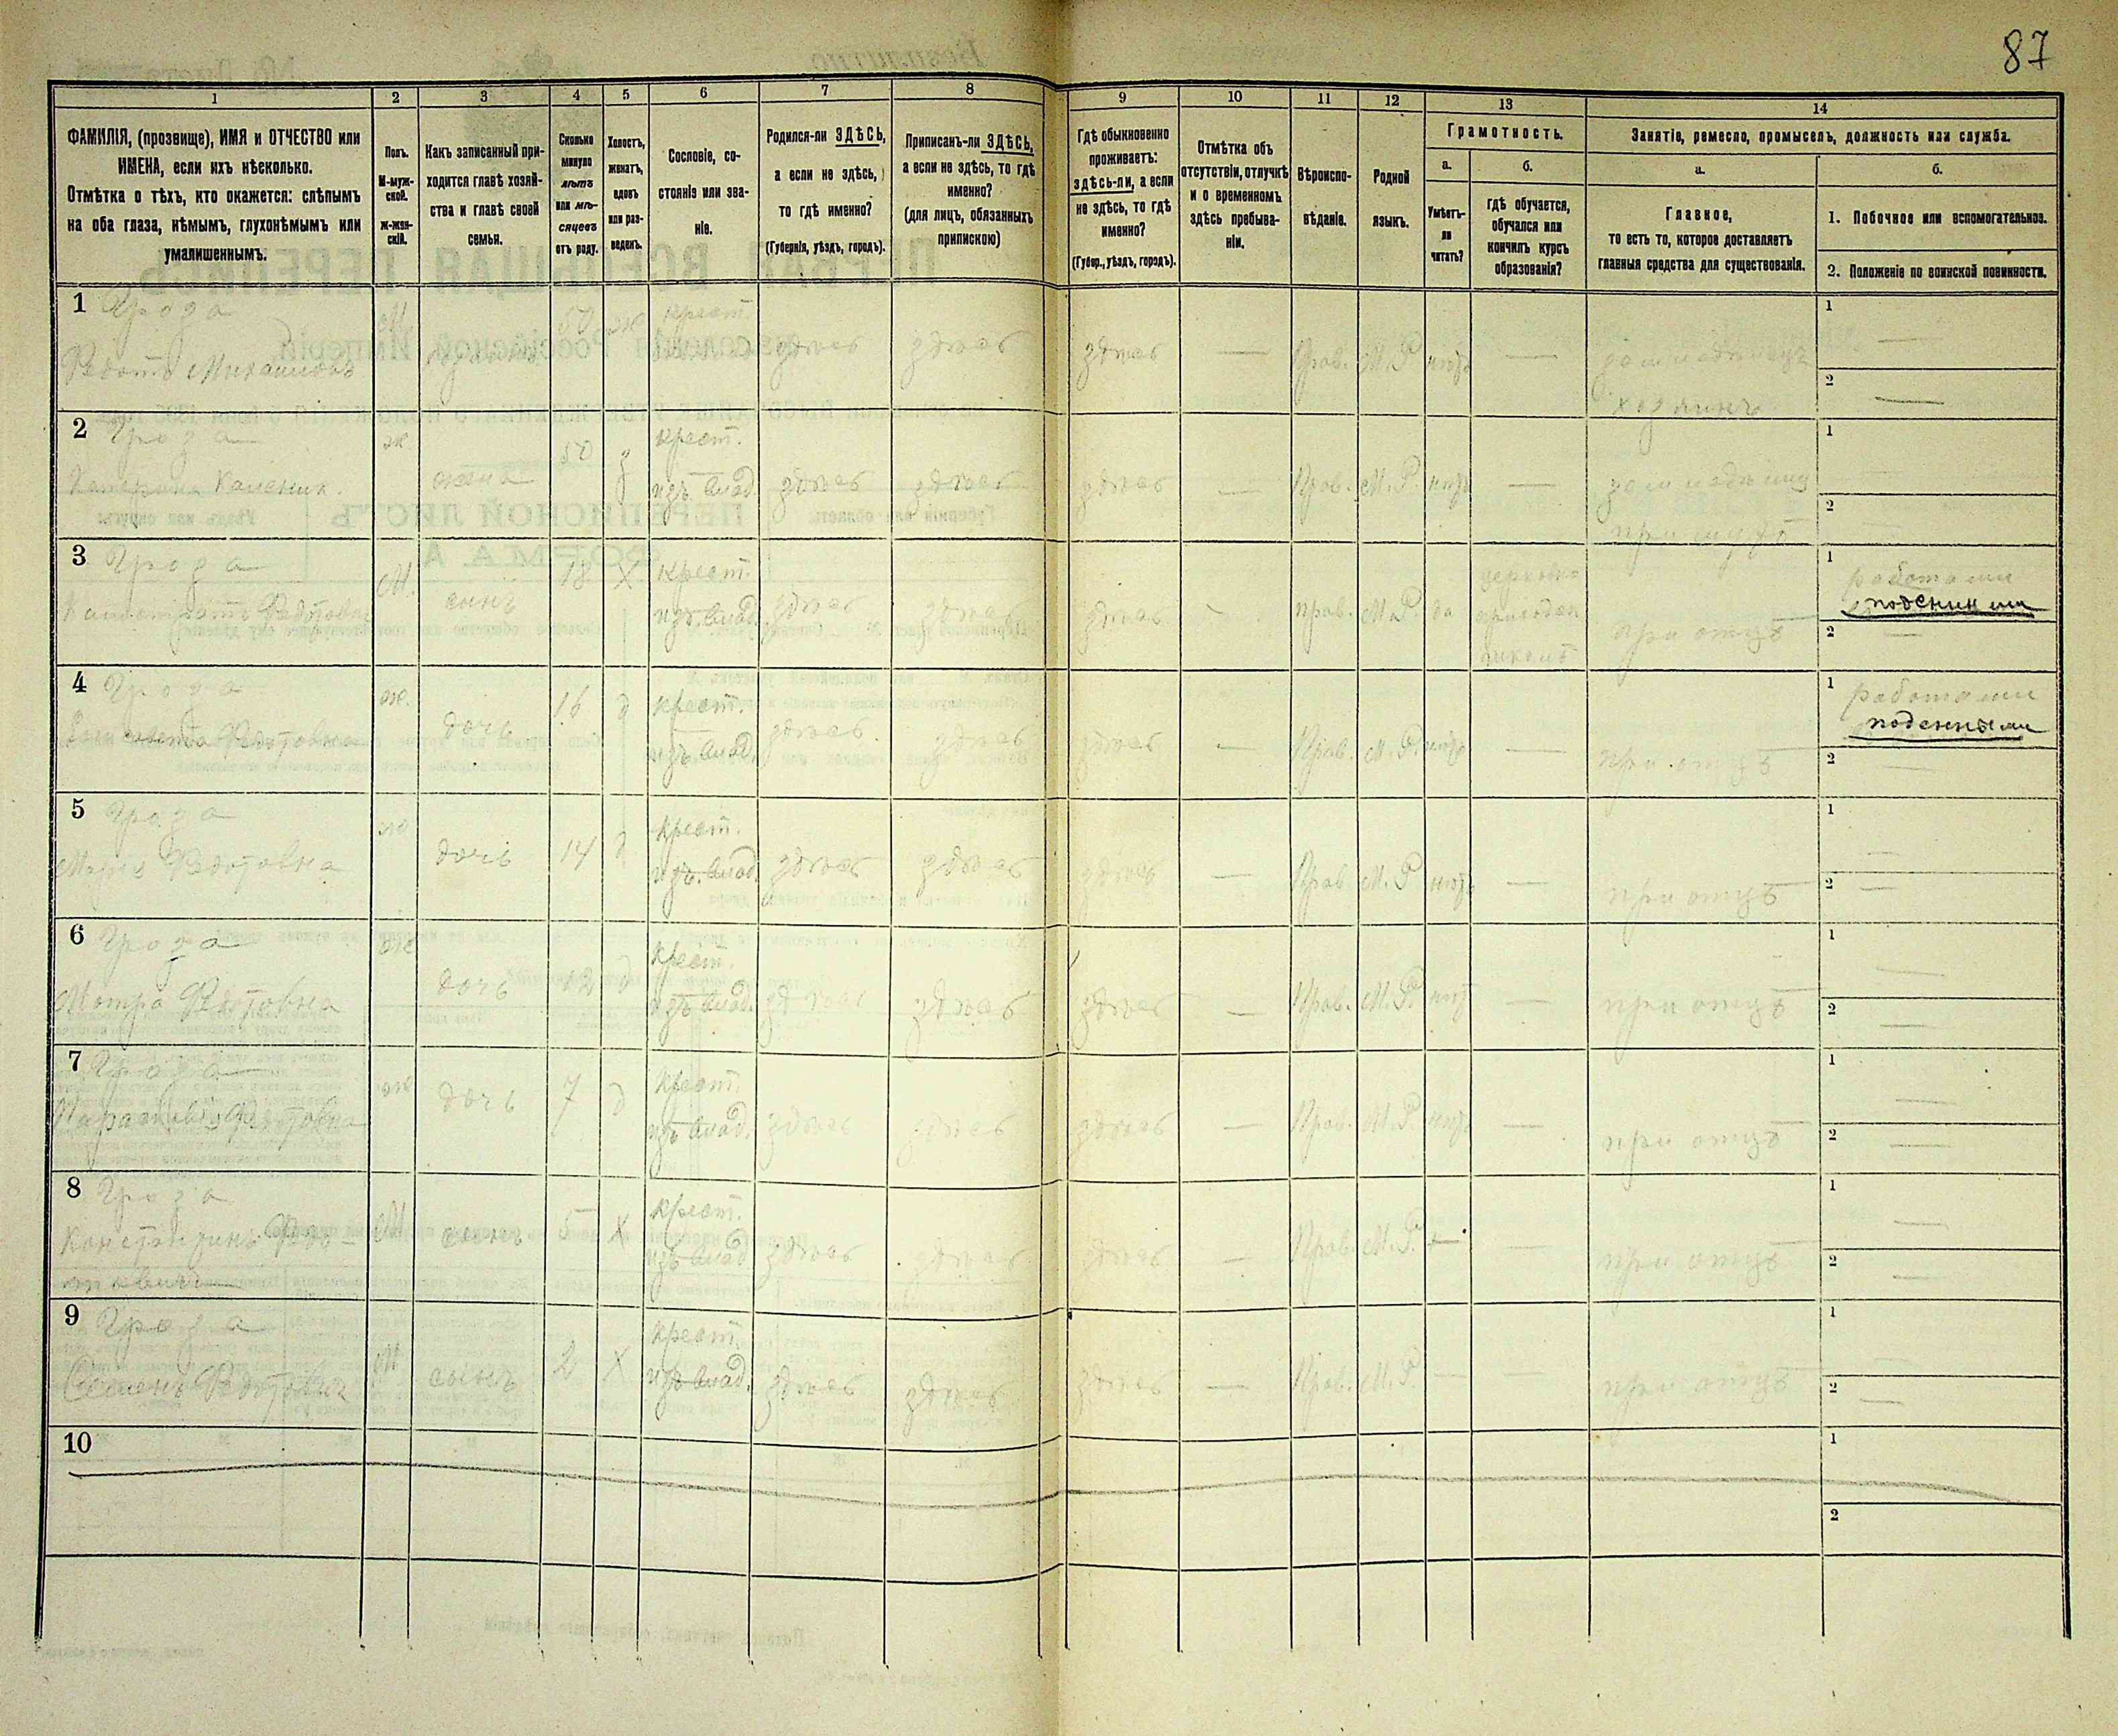 87
1 2 3 4 5 6 7 8 9 10 11 12 13 14
ФАМИЛІЯ, (прозвище), ИМЯ и ОТЧЕСТВО или
ИМЕНА, если ихъ нѣсколько.
Отмѣтка о тѣхъ, кто окажется: слѣпымъ
на оба глаза, нѣмымъ, глухонѣмымъ или
умалишеннымъ.
Полъ.
М-муж-
ской.
ж-жен-
скій.
Какъ записанный при-
ходится главѣ хозяй-
ства и главѣ своей
семьи.
Сколько
минуло
лѣтъ
или мѣ-
сяцевъ
отъ роду.
Холостъ,
женатъ,
вдовъ
или раз-
веденъ.
Сословіе, со-
стояніе или зва-
ніе.
Родился-ли ЗДѢСЬ,
а если не здѣсь,
то гдѣ именно?
(Губернія, уѣздъ, городъ).
Приписанъ-ли ЗДѢСЬ,
а если не здѣсь, то гдѣ
именно?
(для лицъ, обязанныхъ
припискою)
Гдѣ обыкновенно
проживаетъ:
здѣсь-ли, а если
не здѣсь, то гдѣ
именно?
(Губер., уѣздъ, городъ).
Отмѣтка объ
отсутствіи, отлучкѣ
и о временномъ
здѣсь пребыва-
ніи.
Вѣроиспо-
вѣданіе.
Родной
языкъ.
Грамотность.
а.
Умѣетъ-
ли
читать?
б.
гдѣ обучается,
обучался или
кончилъ курсъ
образованія?
Занятіе, ремесло, промыселъ, должность или служба.
а.
Главное,
то есть то, которое доставляетъ
главныя средства для существованія.
б.
1. Побочное или вспомогательное.
2. Положеніе по воинской повинности.
1 Гроза
Федотъ Михаиловъ
М. 50 ж крест.
здѣсь здѣсь здѣсь — Прав. М.Р. нѣтъ —
хозяинъ
1 —
2 —
2 Гроза
ж. жена 50 з крест.
изъ влад. здѣсь здѣсь здѣсь — Прав. М.Р. нѣтъ —
при мужѣ
1 —
2 —
3 Гроза
М. сынъ 18 Х крест.
изъ влад. здѣсь здѣсь здѣсь — прав. М.Р. да
церковно
приходск.
школѣ
при отцѣ
1 работами
поденными
2 —
4 Гроза
Федотовна
ж. дочь 16 д крест.
изъ влад. здѣсь здѣсь здѣсь — Прав. М.Р. нѣтъ —
при отцѣ
1 работами
поденными
2 —
5 Гроза
Марія Федотовна
ж дочь 14 д крест.
изъ влад. здѣсь здѣсь здѣсь — Прав М.Р нѣтъ —
при отцѣ
1 —
2 —
6 Гроза
Мотра Федотовна
ж дочь 12 д крест.
изъ влад. здѣсь здѣсь здѣсь — Прав. М.Р. нѣтъ —
при отцѣ
1 —
2 —
7 Гроза
Парасковія Федотовна
ж дочь 7 д крест.
изъ влад. здѣсь здѣсь здѣсь — Прав. М.Р. нѣтъ —
при отцѣ
1 —
2 —
8 Гроза
Константинъ Федо-
товичъ
М сынъ 5 Х крест.
изъ влад. здѣсь здѣсь здѣсь — Прав. М.Р. — —
при отцѣ
1 —
2 —
9 Гроза
Семенъ Федотовичъ
М сынъ 2 Х крест.
изъ влад. здѣсь здѣсь здѣсь — Прав. М.Р. — —
при отцѣ
1 —
2 —
10
1
2